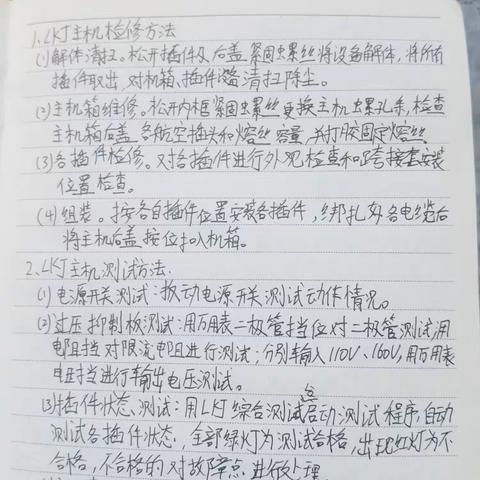 1.LKJ主机检修方法
(1)解体清扫。松开插件及后盖紧固螺丝将设备解体,将所
插件取出,对机箱、插件逐清扫除尘。
(2)主机箱维修。松开内框紧固螺丝更换主机螺孔条,检查
主机箱后盖各航空插头和熔丝容量,并打胶固定熔丝。
(3)各插件检修。对各插件进行外观检查和跨接套安装
位置检查。
(4)组装。按各自插件位置安装各插件,绑扎好各电缆后
将主机后盖按位扣入机箱。
2.LKJ主机测试方法.
(1)电源开关测试:扳动电源开关测试动作情况。
(2)过压抑制板测试:用万用表二极管挡位对二极管测试,用
电阻挡对限流电阻进行测试;分别输入110V、160V,用万用表
电压挡进行输出电压测试。
(3)插件状态测试:用LKJ综合测试台启动测试程序,自动
测试各插件状态,全部绿灯为测试合格,出现红灯为不
合格,不合格的对故障点进行处理